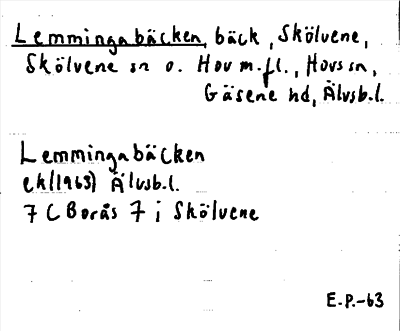 Lemmingabäcken, bäck, Skölvene,
Skölvene sn o. Hov m.fl., Hovs sn,
Gäsene hd, Älvsb.l.
Lemmingabäcken
ek(1963) Älvsb.l.
7 C Borås 7 i Skölvene
E.P.-63